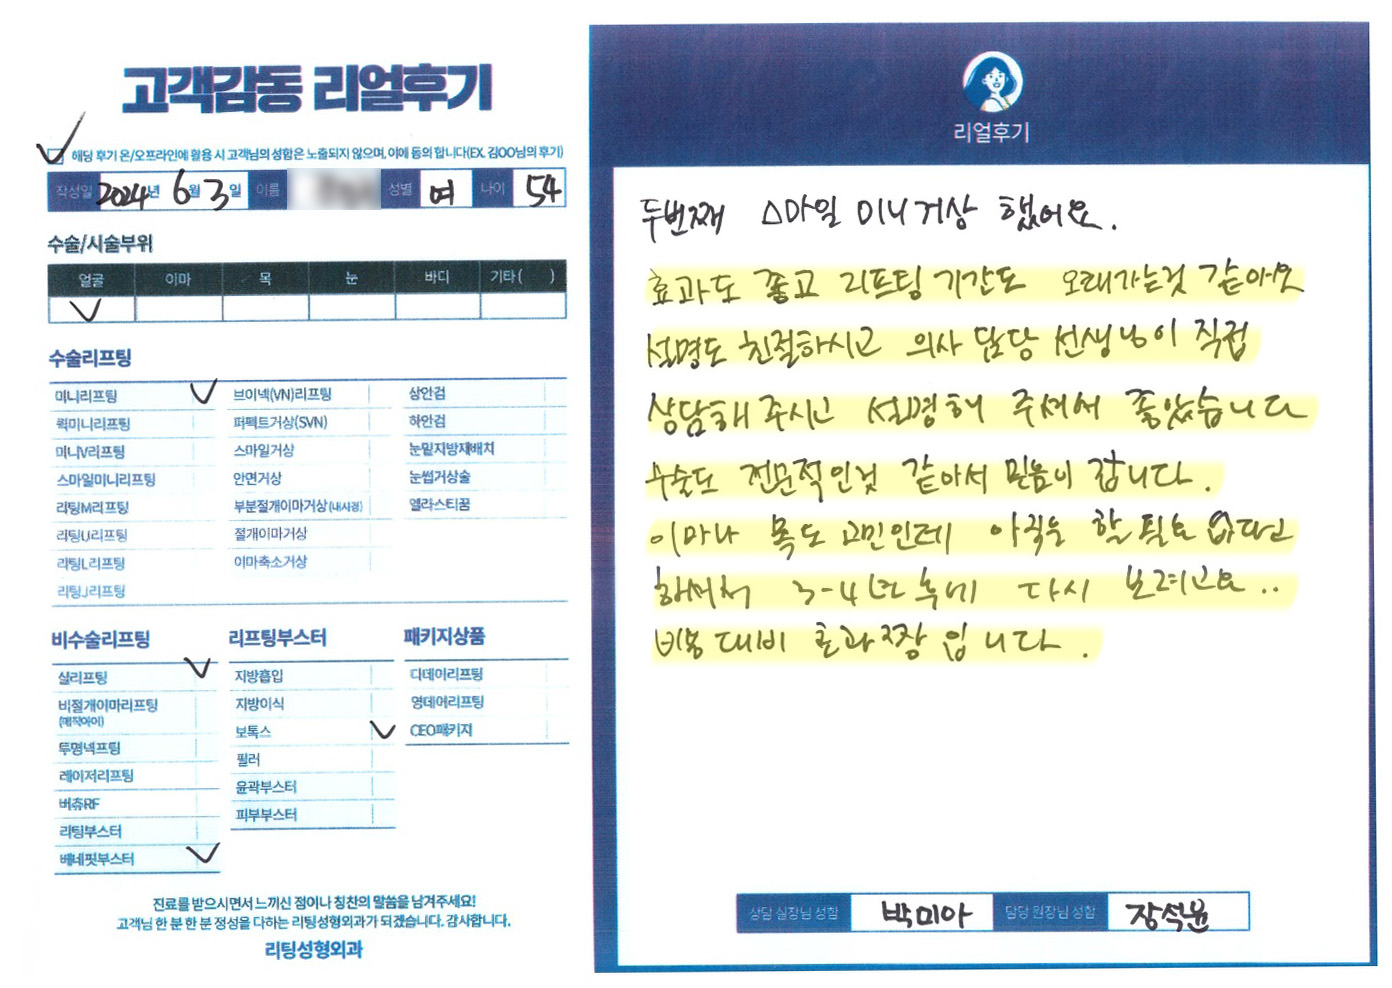 고객감동 리얼후기
해당 후기 온/오프라인에 활용 시 고객님의 성함은 노출되지 않으며, 이에 동의 합니다(EX. 김OO님의 후기)
작성일 2024년 6월 3일 이름 성별 여 나이 54
수술/시술부위
얼굴 이마 목 눈 바디 기타 ( )
수술리프팅
미니리프팅 브이넥(VN)리프팅 상안검
퀵미니리프팅 퍼펙트거상(SVN) 하안검
미니V리프팅 스마일거상 눈밑지방재배치
스마일미니리프팅 안면거상 눈썹거상술
리팅M리프팅 부분절개이마거상(내시경) 엘라스티꿈
리팅U리프팅 절개이마거상
리팅L리프팅 이마축소거상
리팅J리프팅
비수술리프팅 리프팅부스터 패키지상품
실리프팅 지방흡입 디데이리프팅
비절개이마리프팅 지방이식 영데이리프팅
(매직아이) 보톡스 CEO패키지
투명넥프팅 필러
레이저리프팅 윤곽부스터
버츄RF 피부부스터
리팅부스터
베네핏부스터
진료를 받으시면서 느끼신 점이나 칭찬의 말씀을 남겨주세요!
고객님 한 분 한 분 정성을 다하는 리팅성형외과가 되겠습니다. 감사합니다.
리팅성형외과
리얼후기
두번째 스마일 미니거상 했어요.
효과도 좋고 리프팅 기간도 오래가는것 같아요
설명도 친절하시고 의사 담당 선생님이 직접
상담해 주시고 설명해 주셔서 좋았습니다
수술도 전문적인것 같아서 믿음이 갑니다.
이마나 목도 고민인데 아직은 할 필요 없다고
하셔서 3-4년 후에 다시 보려고요..
비용대비 효과 짱 입니다.
상담 실장님 성함 박미아 담당 원장님 성함 장석윤